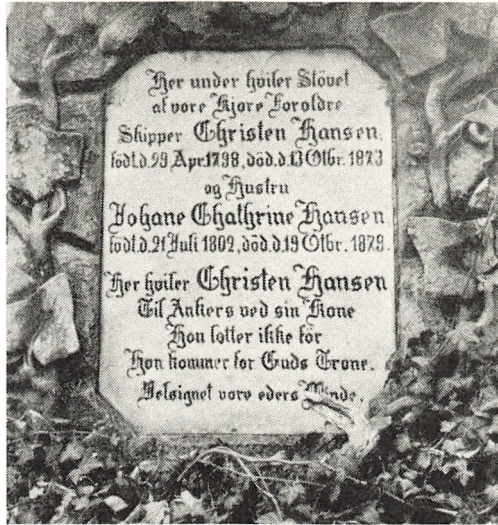 Her under hviler Stövet
af vore Kjære Forældre
Skipper Christen Hansen,
födt.d.29 Apr.1798, död.d.13 Otbr. 1873
og Hustru
Johane Chathrine Hansen
födt.d.21 Juli 1802, död.d.19 Otbr. 1879.
Her hviler Christen Hansen
Til Ankers ved sin Kone
Han letter ikke för
Han kommer for Guds Trone.
Velsignet være eders Minde.